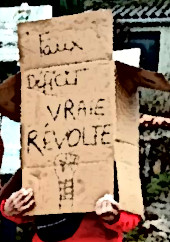 Faux
Déficit
VRAIE
RÉVOLTE